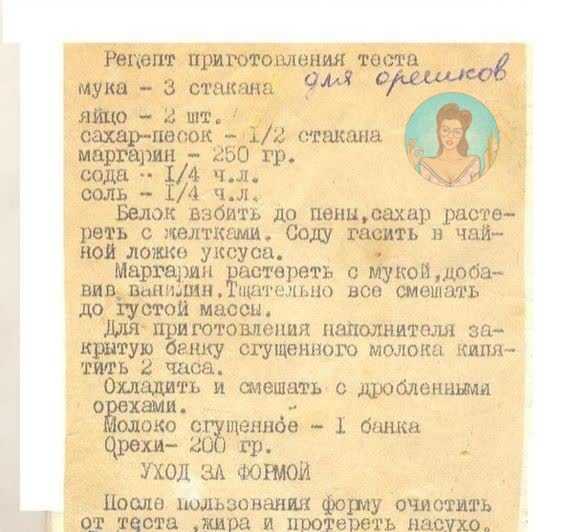 Рецепт приготовления теста
для орешков
мука - 3 стакана
яйцо - 2 шт.
сахар-песок - 1/2 стакана
маргарин - 250 гр.
сода - 1/4 ч.л.
соль - 1/4 ч.л.
Белок взбить до пены,сахар расте-
реть с желтками. Соду гасить в чай-
ной ложке уксуса.
Маргарин растереть с мукой,доба-
вив ванилин.Тщательно все смешать
до густой массы.
Для приготовления наполнителя за-
крытую банку сгущенного молока кипя-
тить 2 часа.
Охладить и смешать с дробленными
орехами.
Молоко сгущенное - 1 банка
Орехи- 200 гр.
УХОД ЗА ФОРМОЙ
После пользования форму очистить
от теста ,жира и протереть насухо.